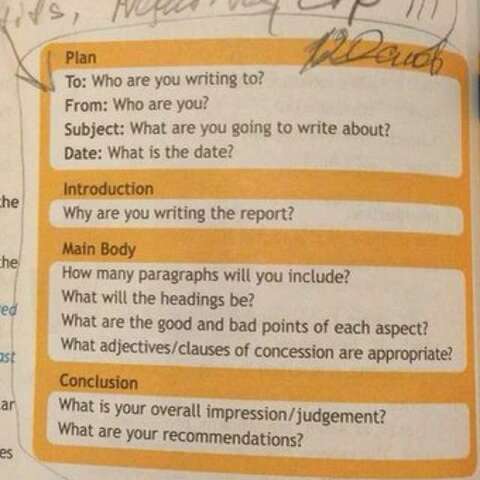 Plan
To: Who are you writing to?
From: Who are you?
Subject: What are you going to write about?
Date: What is the date?
Introduction
Why are you writing the report?
Main Body
How many paragraphs will you include?
What will the headings be?
What are the good and bad points of each aspect?
What adjectives/clauses of concession are appropriate?
Conclusion
What is your overall impression/judgement?
What are your recommendations?